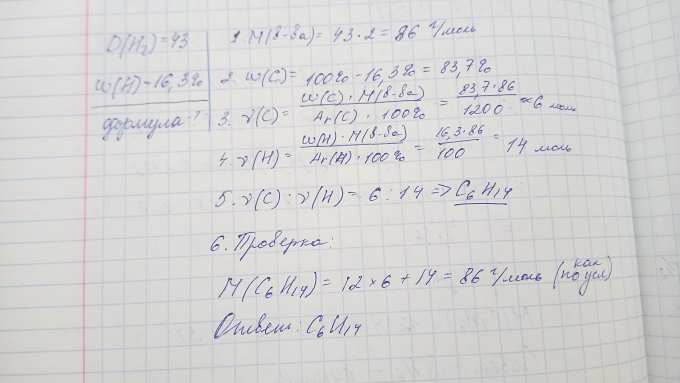 D(H₂)=43
w(H)-16,3%
формула-?
1. M(в-ва)= 43·2=86 г/моль
2. w(C)= 100%-16,3% = 83,7%
3. ν(C)= w(C)·M(в-ва) / Ar(C)·100% = 83,7·86 / 1200 ≈6 моль
4. ν(H)= w(H)·M(в-ва) / Ar(H)·100% = 16,3·86 / 100 = 14 моль
5. ν(C):ν(H)= 6:14 => C₆H₁₄
6. Проверка:
M(C₆H₁₄)=12×6+14=86 г/моль (как по усл)
Ответ: C₆H₁₄